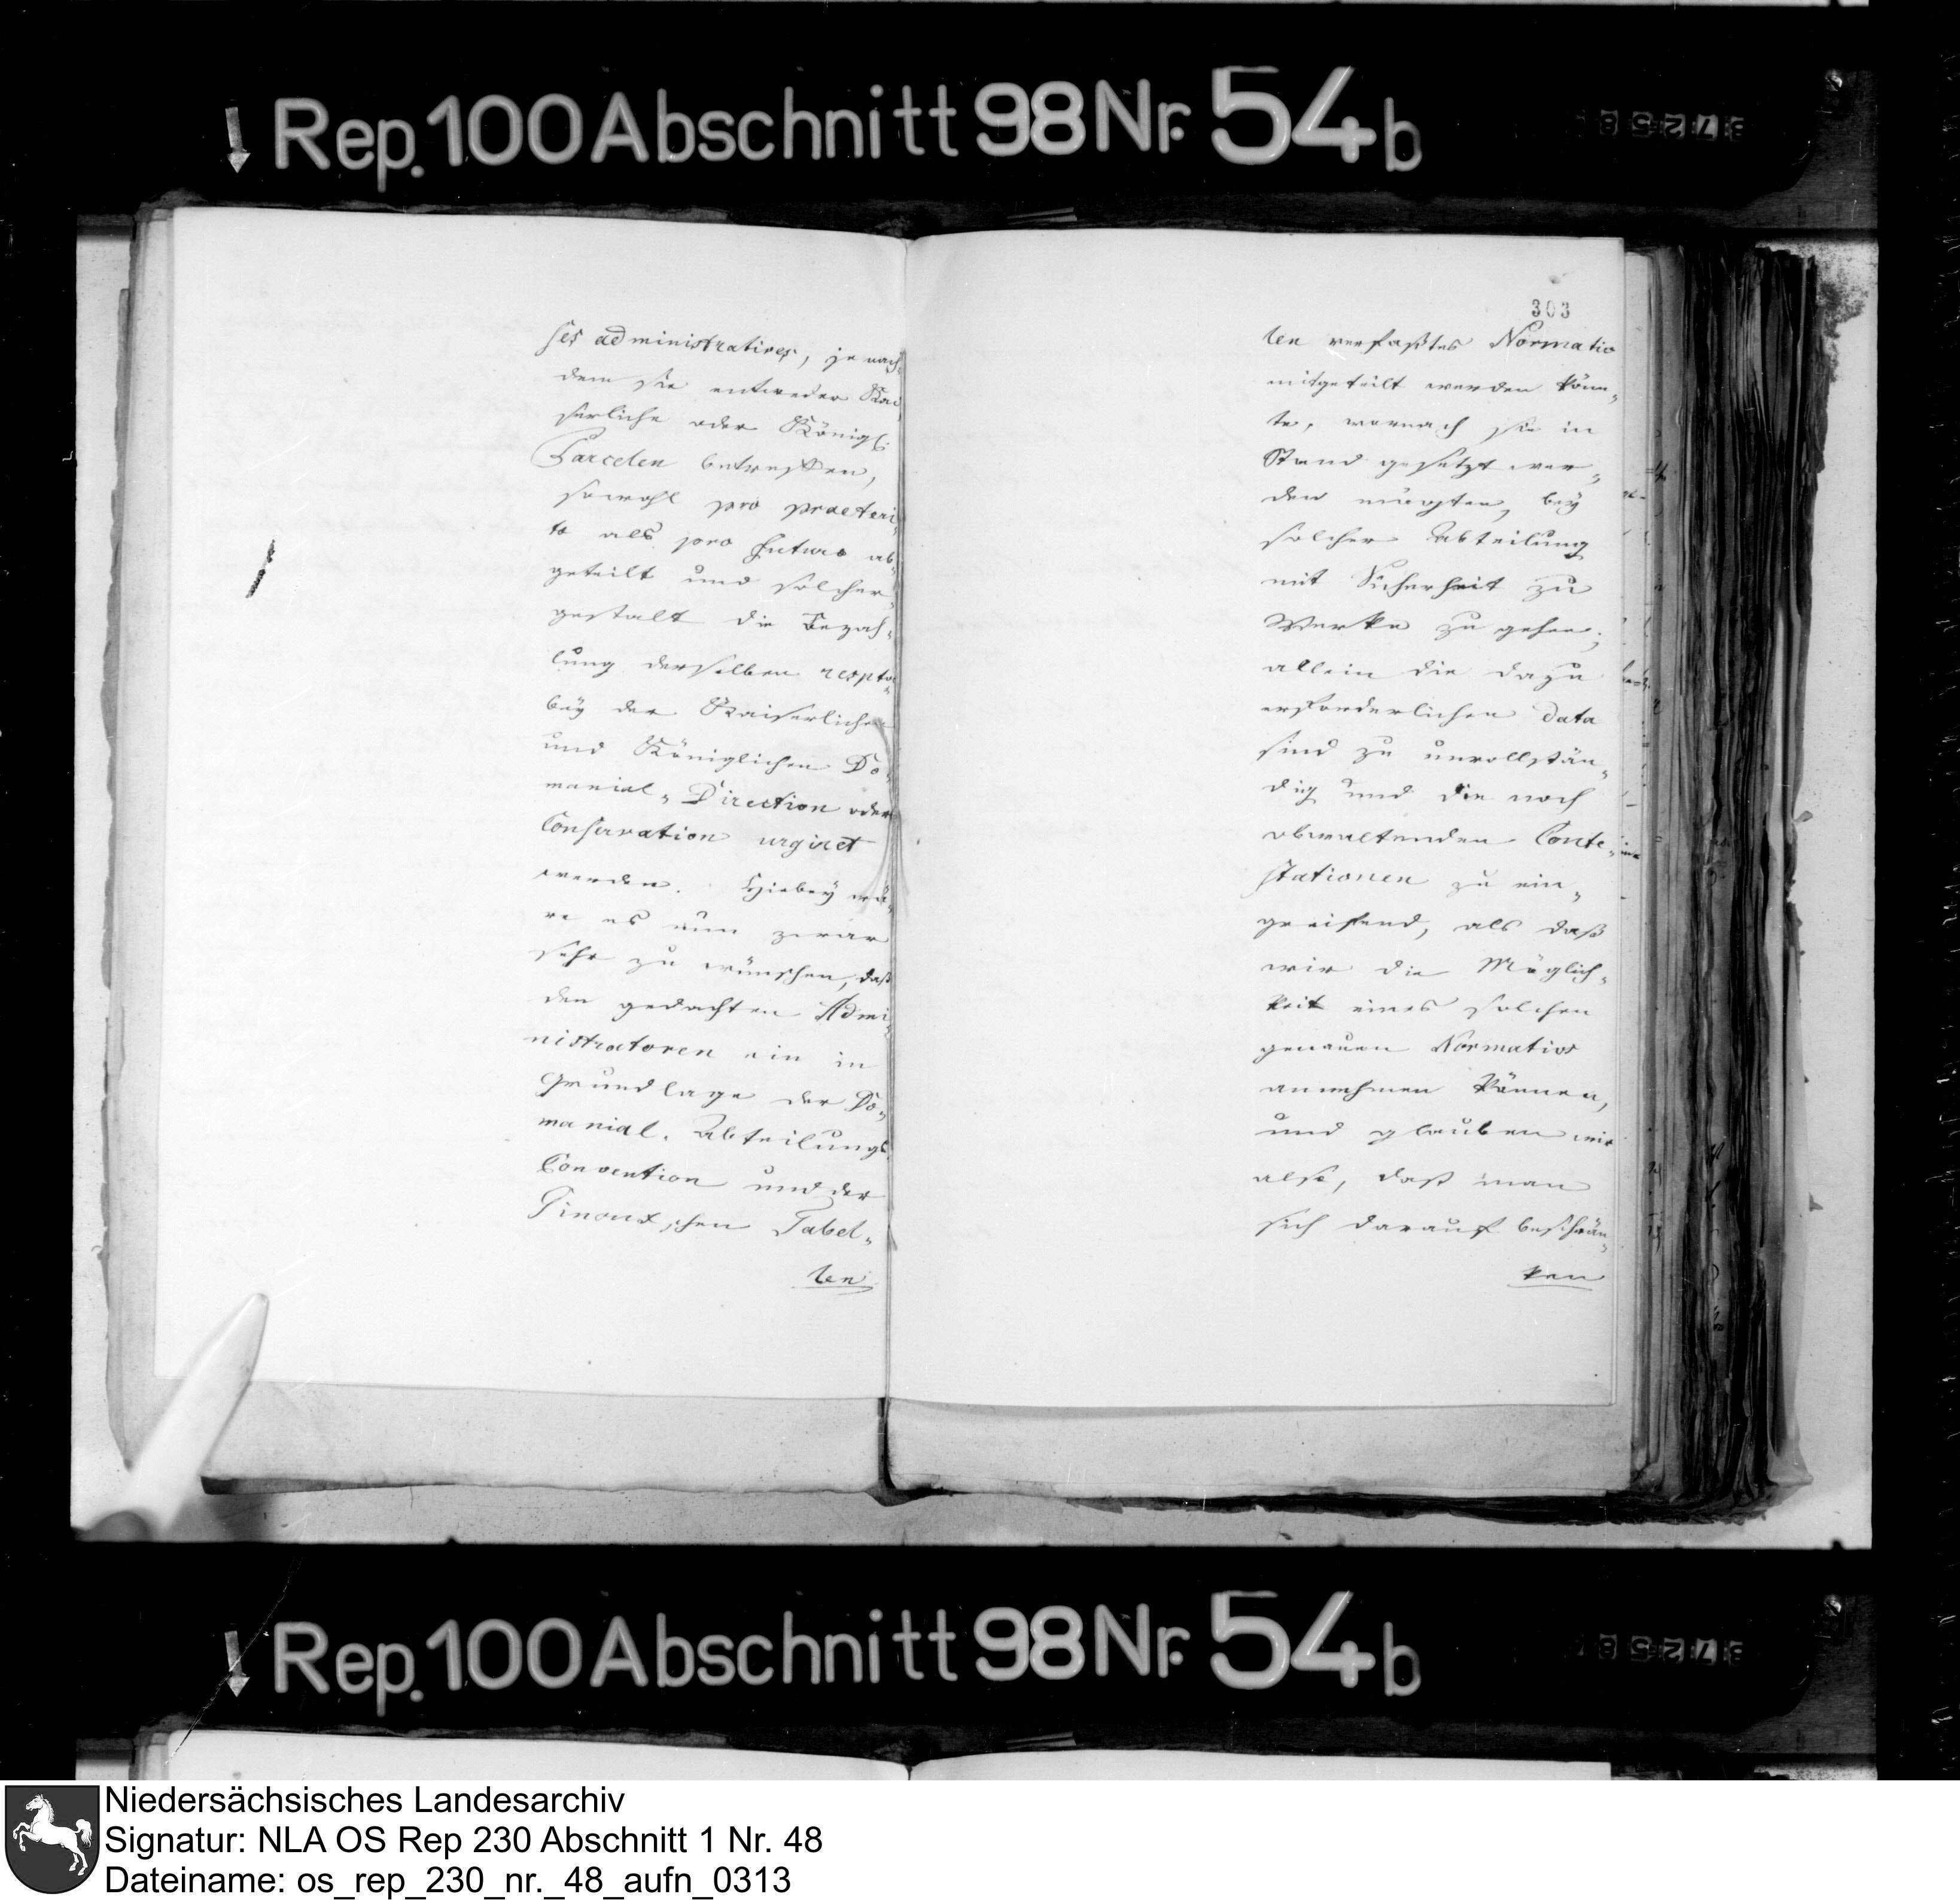 Rep. 100 Abschnitt 98 Nr. 54 b
ses administratives, je nach-
dem sie entweder Kai-
serliche oder Königl.
Parcelen betreffen,
sowohl pro praeteri-
to als pro futuro ab-
geteilt und solcher-
gestalt die Bezah-
lung derselben
bey der Kaiserlichen
und Königlichen Do-
manial-Direction oder
Conservation urgiret
werden. Hiebey wä-
re es nun zwar
sehr zu wünschen, daß
den gedachten Admi-
nistratoren ein in
Grundlage der Do-
manial-Abteilungs-
Convention und der
Pinouxschen Tabel-
len
303
len verfaßtes Normativ
mitgeteilt werden könn-
te, wornach sie in
Stand gesetzt wer-
den mögten, bey
solcher Abteilung
mit Sicherheit zu
Werke zu gehen;
allein die dazu
erforderlichen Data
sind zu unvollstän-
dig und die noch
obwaltenden Conte-
stationen zu ein-
greifend, als daß
wir die Möglich-
keit eines solchen
genauen Normativs
annehmen können,
und glauben wir
also, daß man
sich darauf beschrän-
ken
Rep. 100 Abschnitt 98 Nr. 54 b
Niedersächsisches Landesarchiv
Signatur: NLA OS Rep 230 Abschnitt 1 Nr. 48
Dateiname: os_rep_230_nr._48_aufn_0313